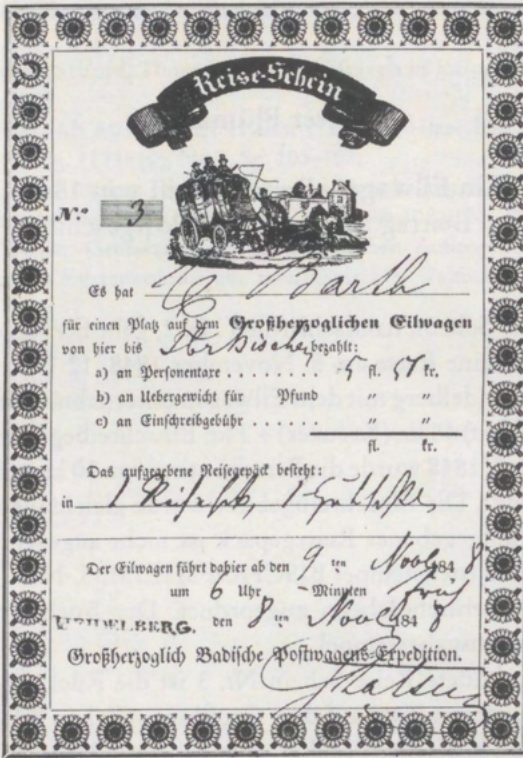 Reise-Schein
No. 3
Es hat Barth
für einen Platz auf dem Großherzoglichen Eilwagen
von hier bis bezahlt:
a) an Personentaxe . . . . 5 fl. 54 kr.
b) an Uebergewicht für Pfund
c) an Einschreibgebühr " "
fl. kr.
Das aufgegebene Reisegepäck besteht:
in 1 1
Der Eilwagen fährt dahier ab den 9 ten Novb 1848
um 6 Uhr -Minuten früh
HEIDELBERG. den 8 ten Novb 1848
Großherzoglich Badische Postwagens-Expedition.